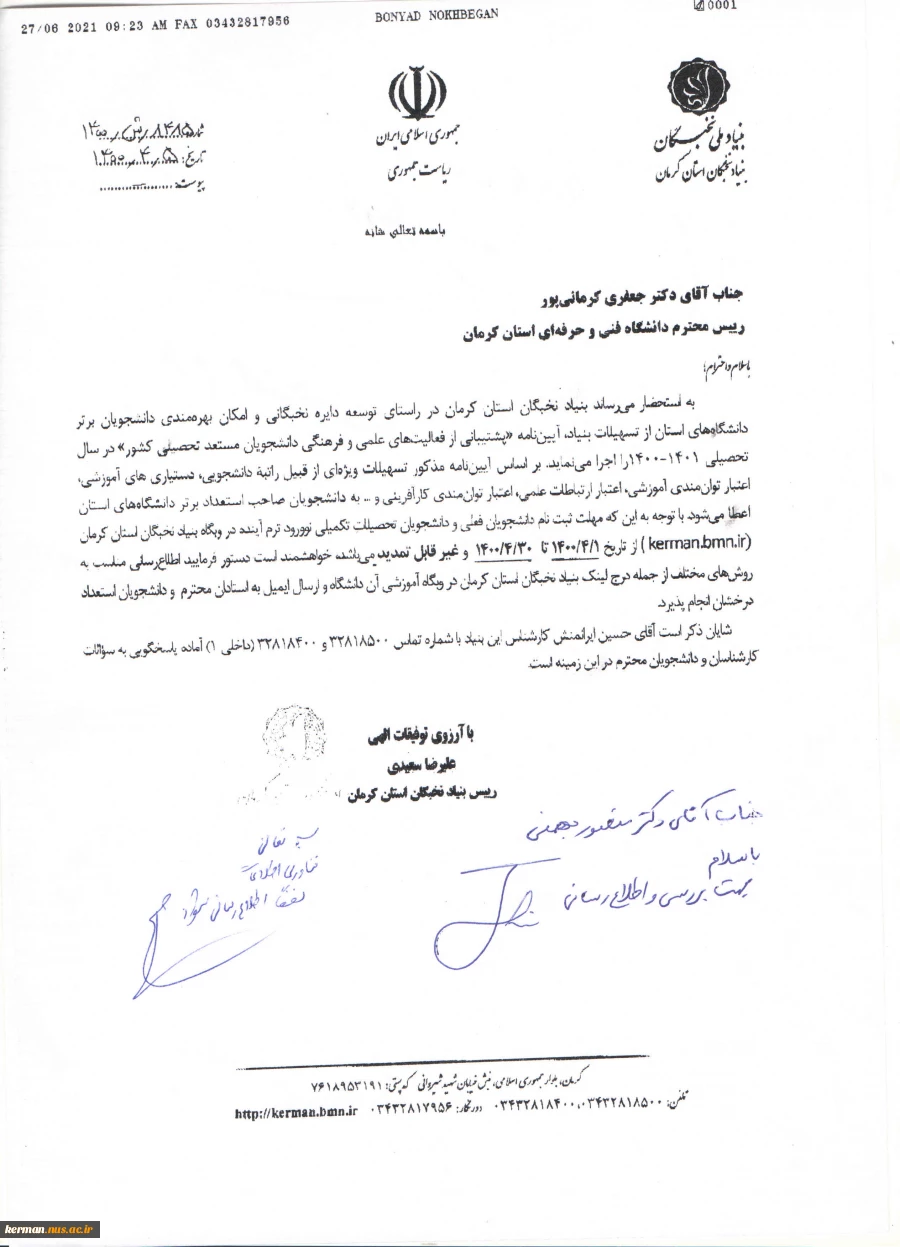 27/06 2021 09:23 AM FAX 03432817956 BONYAD NOKHBEGAN 0001
بنیاد ملی نخبگان
بنیاد نخبگان استان کرمان
جمهوری اسلامی ایران
ریاست جمهوری
تاریخ:
پیوست:
باسمه تعالی شانه
جناب آقای دکتر جعفری کرمانی‌پور
رییس محترم دانشگاه فنی و حرفه‌ای استان کرمان
باسلام و احترام؛
به استحضار می‌رساند بنیاد نخبگان استان کرمان در راستای توسعه دایره نخبگانی و امکان بهره‌مندی دانشجویان برتر
دانشگاه‌های استان از تسهیلات بنیاد، آیین‌نامه «پشتیبانی از فعالیت‌های علمی و فرهنگی دانشجویان مستعد تحصیلی کشور» در سال
تحصیلی ۱۴۰۱-۱۴۰۰را اجرا می‌نماید. بر اساس آیین‌نامه مذکور تسهیلات ویژه‌ای از قبیل راتبة دانشجویی، دستیاری های آموزشی،
اعتبار توان‌مندی آموزشی، اعتبار ارتباطات علمی، اعتبار توان‌مندی کارآفرینی و ... به دانشجویان صاحب استعداد برتر دانشگاه‌های استان
اعطا می‌شود. با توجه به این که مهلت ثبت نام دانشجویان فعلی و دانشجویان تحصیلات تکمیلی نوورود ترم آینده در وبگاه بنیاد نخبگان استان کرمان
(kerman.bmn.ir) از تاریخ ۱۴۰۰/۴/۱ تا ۱۴۰۰/۴/۳۰ و غیر قابل تمدید می‌باشد، خواهشمند است دستور فرمایید اطلاع‌رسانی مناسب به
روش‌های مختلف از جمله درج لینک بنیاد نخبگان استان کرمان در وبگاه آموزشی آن دانشگاه و ارسال ایمیل به استادان محترم و دانشجویان استعداد
درخشان انجام پذیرد.
شایان ذکر است آقای حسین ایرانمنش کارشناس این بنیاد با شماره تماس ۳۲۸۱۸۵۰۰ و ۳۲۸۱۸۴۰۰ (داخلی ۱) آماده پاسخگویی به سؤالات
کارشناسان و دانشجویان محترم در این زمینه است.
با آرزوی توفیقات الهی
علیرضا سعیدی
رییس بنیاد نخبگان استان کرمان
جناب آقای دکتر منصور بهمنی
با سلام
جهت بررسی و اطلاع رسانی
فناوری اطلاعات
لطفاً اطلاع رسانی شود
کرمان، بلوار جمهوری اسلامی، نبش خیابان شهید شیروانی کد پستی: ۷۶۱۸۹۵۳۱۹۱
تلفن: ۰۳۴۳۲۸۱۸۵۰۰، ۰۳۴۳۲۸۱۸۴۰۰ دورنگار: ۰۳۴۳۲۸۱۷۹۵۶ http://kerman.bmn.ir
kerman.nus.ac.ir